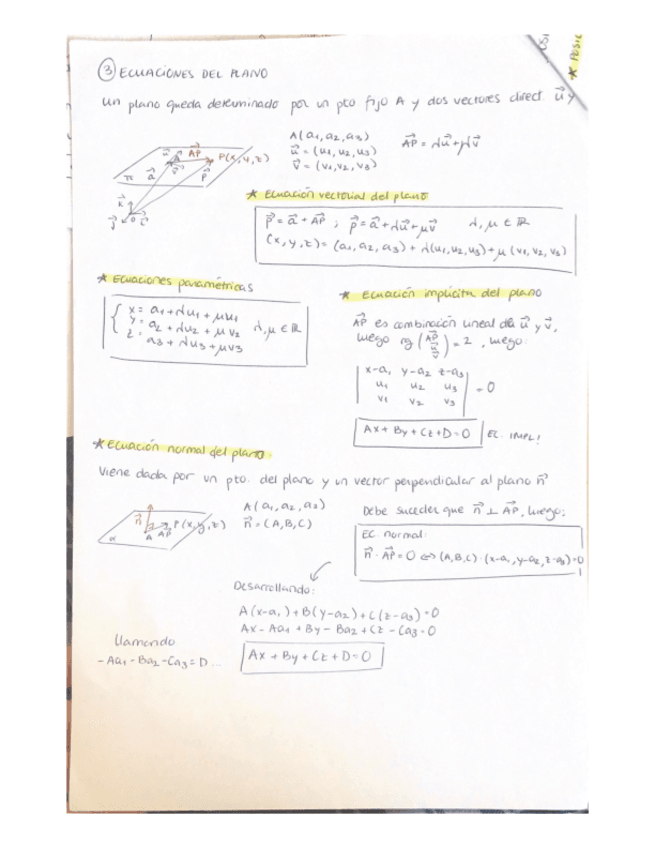 ③ ECUACIONES DEL PLANO
un plano queda determinado por un pto fijo A y dos vectores direct. u⃗ y
A(a₁,a₂,a₃)
u⃗ = (u₁,u₂,u₃)
v⃗ = (v₁,v₂,v₃)
AP⃗ = λu⃗+μv⃗
u⃗ AP⃗ P(x,y,z)
π a⃗ v⃗ p⃗
k⃗
j⃗ O i⃗
★ Ecuación vectorial del plano
p⃗ = a⃗ + AP⃗ ; p⃗ = a⃗+λu⃗+μv⃗ λ,μ ∈ ℝ
(x,y,z) = (a₁,a₂,a₃) + λ(u₁,u₂,u₃)+μ(v₁,v₂,v₃)
★ Ecuaciones paramétricas
x = a₁+λu₁+μu₁
y = a₂+λu₂+μv₂ λ,μ ∈ ℝ
z = a₃+λu₃+μv₃
★ Ecuación implícita del plano
AP⃗ es combinación lineal de u⃗ y v⃗,
luego rg (AP⃗ u⃗ v⃗) = 2 , luego:
x-a₁ y-a₂ z-a₃
u₁ u₂ u₃ = 0
v₁ v₂ v₃
Ax + By + Cz + D = 0 EC. IMPL!
★ Ecuación normal del plano.
Viene dada por un pto. del plano y un vector perpendicular al plano n⃗
n⃗ P(x,y,z)
α A AP⃗
A(a₁,a₂,a₃)
n⃗ = (A,B,C)
Debe suceder que n⃗ ⊥ AP⃗, luego:
EC normal:
n⃗ · AP⃗ = 0 ⇔ (A,B,C)·(x-a₁,y-a₂,z-a₃)=0
Desarrollando:
A(x-a₁)+B(y-a₂)+C(z-a₃)=0
Ax-Aa₁+By-Ba₂+Cz-Ca₃=0
llamando
-Aa₁-Ba₂-Ca₃=D...
Ax + By + Cz + D = 0